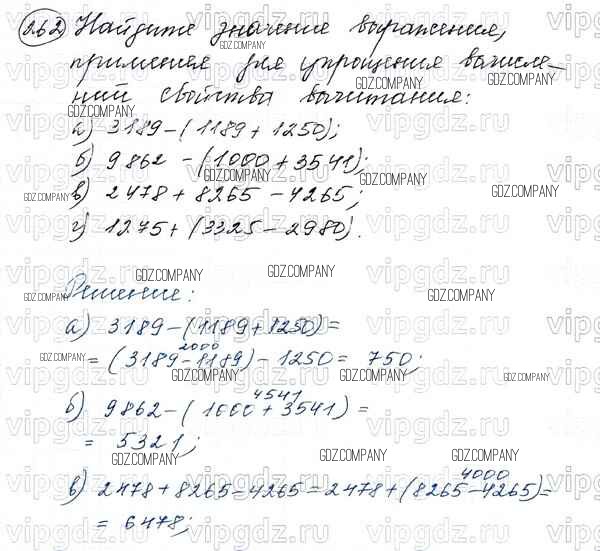 3.62 Найдите значение выражения,
применяя для упрощения вычисле-
ний свойства вычитания:
а) 3189-(1189+1250);
б) 9862 -(1000+3541);
в) 2478+8265-4265;
г) 1275+(3325-2980).
Решение:
а) 3189-(1189+1250)=
2000
=(3189-1189)-1250= 750;
4541
б) 9862-(1000+3541)=
= 5321;
4000
в) 2478+8265-4265=2478+(8265-4265)=
= 6478;
GDZ.COMPANY
vipgdz.ru